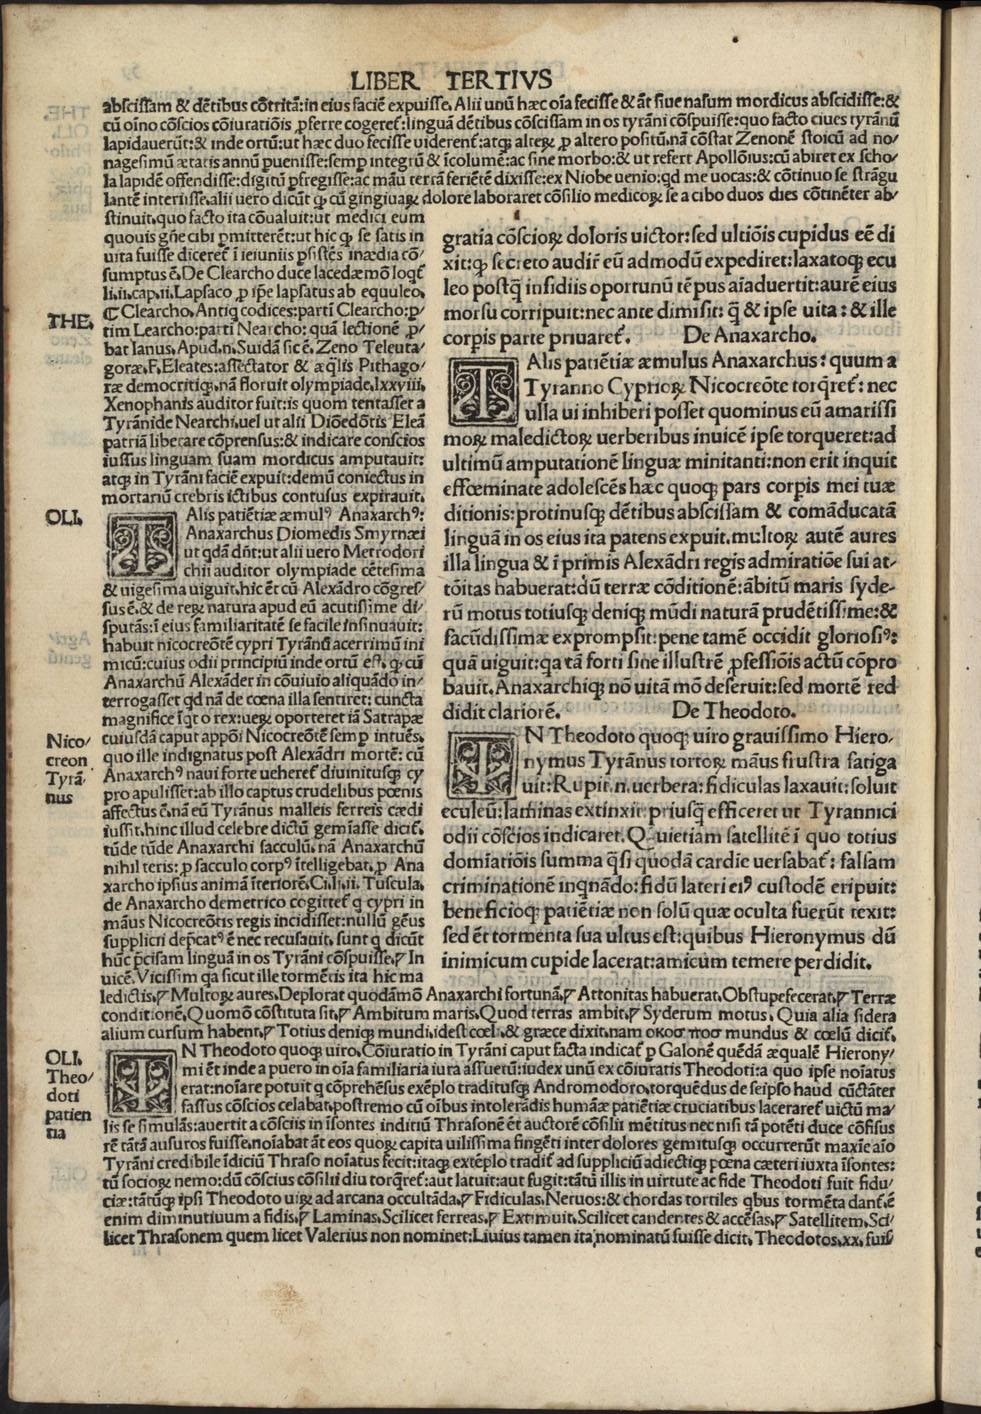 LIBER TERTIVS
abscissam & dētibus cōtritā: in eius faciē expuisse. Alii unū hæc oīa fecisse & āt siue nasum mordicus abscidisse: &
cū oīno cōscios cōiuratiōis ꝓferre cogeret᷑: linguā dētibus cōscissam in os tyrāni cōspuisse: quo facto ciues tyrānū
lapidauerūt: & inde ortū: ut hæc duo fecisse uiderent᷑: atqꝫ alteꝝ ꝓ altero positū. nā cōstat Zenonē stoicū ad no/
nagesimū ætatis annū ꝑuenisse: semꝑ integrū & īcolumē: ac sine morbo: & ut refert Apollōius: cū abiret ex scho/
la lapidē offendisse: digitū ꝑfregisse: ac māu terrā feriētē dixisse: ex Niobe uenio: qd me uocas: & cōtinuo se strāgu
lantē interiisse. alii uero dicūt ꝙ cū gingiuaꝝ dolore laboraret cōsilio medicoꝝ se a cibo duos dies cōtinēter ab/
stinuit. quo facto ita cōualuit: ut medici eum
quouis gn̄e cibi ꝑmitterēt: ut hic ꝙ se satis in
uita fuisse diceret᷑ ī ieiuniis ꝑsistēs inædia cō/
sumptus ē. De Clearcho duce lacedæmō loqt᷑
li. ii. cap. ii. Lapsaco ꝓ ip̄e lapsatus ab equuleo.
THE.
¶ Clearcho. Antiq codices: partī Clearcho: ꝑ/
tim Learcho: partī Nearcho: quā lectionē ꝓ/
bat Ianus. Apud. n. Suidā sic ē. Zeno Teleuta/
goræ. F. Eleates: assectator & æqlis Pithago/
ræ democritiqꝫ. nā floruit olympiade. lxxviii.
Xenophanis auditor fuit: is quom tentasset a
Tyrānide Nearchi. uel ut alii Diōedōtis Eleā
patriā liberare cōprensus: & indicare conscios
iussus linguam suam mordicus amputauit:
atqꝫ in Tyrāni faciē expuit: demū coniectus in
mortariū crebris ictibus contusus expirauit.
OLI.
TAlis patiētiæ æmulꝰ Anaxarchꝰ:
Anaxarchus Diomedis Smyrnæi
ut qdā dn̄t: ut alii uero Metrodori
chii auditor olympiade cētesima
& uigesima uiguit. hic ēt cū Alexādro cōgres/
sus ē. & de reꝝ natura apud eū acutissime di/
sputās: ī eius familiaritatē se facile insinuauit:
habuit nicocreōtē cypri Tyrānū acerrimū ini
micū: cuius odii principiū inde ortū est. ꝙ cū
Anaxarchū Alexāder in cōuiuio aliquādo in/
terrogasset qd nā de cœna illa sentiret: cuncta
magnifice īqt o rex: ueꝝ oporteret iā Satrapæ
Nico/
creon
Tyrā
nus
cuiusdā caput appōi Nicocreōtē semꝑ intuēs.
quo ille indignatus post Alexādri mortē: cū
Anaxarchꝰ naui forte ueheret᷑ diuinitusqꝫ cy
pro apulisset: ab illo captus crudelibus pœnis
affectus ē. nā eū Tyrānus malleis ferreis cædi
iussit. hinc illud celebre dictū gemīasse dicit᷑.
tūde tūde Anaxarchi sacculū. nā Anaxarchū
nihil teris: ꝓ sacculo corpꝰ ītelligebat. ꝓ Ana
xarcho ipsius animā īteriorē. Ci. li. ii. Tuscula.
de Anaxarcho demetrico cogittet᷑ q cypri in
māus Nicocreōtis regis incidisset: nullū gēus
supplicii dep̄catꝰ ē nec recusauit. sunt q dicūt
hūc p̄cisam linguā in os Tyrāni cōspuisse. ⁋ In
uicē. Vicissim qa sicut ille tormētis ita hic ma
gratia cōscioꝝ doloris uictor: sed ultiōis cupidus eē di
xit: ꝙ secreto audir᷑ eū admodū expediret: laxatoqꝫ ecu
leo postq̄ insidiis oportunū tēpus aīaduertit: aurē eius
morsu corripuit: nec ante dimisit: q̄ & ipse uita: & ille
corpis parte priuaret᷑. De Anaxarcho.
TAlis patiētiæ æmulus Anaxarchus: quum a
Tyranno Cyprioꝝ Nicocreōte torq̄ret᷑: nec
ulla ui inhiberi posset quominus eū amarissi
moꝝ maledictoꝝ uerberibus inuicē ipse torqueret: ad
ultimū amputationē linguæ minitanti: non erit inquit
effœminate adolescēs hæc quoqꝫ pars corpis mei tuæ
ditionis: protinusqꝫ dētibus abscissam & comāducatā
linguā in os eius ira patens expuit. multoꝝ autē aures
illa lingua & ī primis Alexādri regis admiratiōe sui at-
tōitas habuerat: dū terræ cōditionē: ābitū maris syde-
rū motus totiusqꝫ deniqꝫ mūdi naturā prudētissime: &
facūdissimæ exprompsit: pene tamē occidit gloriosiꝰ:
quā uiguit: qa tā forti fine illustrē ꝓfessiōis actū cōpro
bauit. Anaxarchiqꝫ nō uitā mō deseruit: sed mortē red
didit clariorē. De Theodoto.
IN Theodoto quoqꝫ uiro grauissimo Hiero-
nymus Tyrānus tortoꝝ māus frustra fatiga
uit: Rupit. n. uerbera: fidiculas laxauit: soluit
eculeū: laminas extinxit: priusq̄ efficeret ut Tyrannici
odii cōscios indicaret. Quietiam satellitē ī quo totius
domīatiōis summa q̄si quodā cardie uersabat᷑: falsam
criminationē inqnādo: fidū lateri eiꝰ custodē eripuit:
beneficioqꝫ patiētiæ non solū quæ oculta fuerūt texit:
sed ēt tormenta sua ultus est: quibus Hieronymus dū
inimicum cupide lacerat: amicum temere perdidit.
ledictis. ⁋ Multoꝝ aures. Deplorat quodāmō Anaxarchi fortunā. ⁋ Attonitas habuerat. Obstupefecerat. ⁋ Terræ
conditionē. Quomō cōstituta sit. ⁋ Ambitum maris. Quod terras ambit. ⁋ Syderum motus. Quia alia sidera
alium cursum habent. ⁋ Totius deniqꝫ mundi. idest cœli. & græce dixit. nam οκοσμοσ mundus & cœlū dicit᷑.
OLI.
Theo/
doti
patien
tia
IN Theodoto quoqꝫ uiro. Cōiuratio in Tyrāni caput facta indicat᷑ ꝑ Galonē quēdā æqualē Hierony/
mi ēt inde a puero in oīa familiaria iura assuetū: iudex unū ex cōiuratis Theodoti: a quo ipse noīatus
erat: noīare potuit q cōprehēsus exēplo traditusqꝫ Andromodoro. torquēdus de seipso haud cūctāter
fassus cōscios celabat. postremo cū oībus intolerādis humāæ patiētiæ cruciatibus laceraret᷑ uictū ma/
lis se simulās: auertit a cōsciis in īsontes inditiū Thrasonē ēt auctorē cōsilii mētitus nec nisi tā potēti duce cōfisus
rē tātā ausuros fuisse. noīabat āt eos quoꝝ capita uilissima fingēti inter dolores gemitusqꝫ occurrerūt maxīe aīo
Tyrāni credibile īdiciū Thraso noīatus fecit: itaqꝫ extēplo tradit᷑ ad suppliciū adiectiqꝫ pœna cæteri iuxta īsontes:
tū socioꝝ nemo: dū cōscius cōsilii diu torq̄ret᷑: aut latuit: aut fugit: tātū illis in uirtute ac fide Theodoti fuit fidu/
ciæ: tātūqꝫ ipsi Theodoto uiꝝ ad arcana occultāda. ⁋ Fidiculas. Neruos: & chordas tortiles qbus tormēta dant᷑. ē
enim diminutiuum a fidis. ⁋ Laminas. Scilicet ferreas. ⁋ Extinxuit. Scilicet candentes & accēsas. ⁋ Satellitem. Sci/
licet Thrasonem quem licet Valerius non nominet: Liuius tamen ita nominatū fuisse dicit. Theodotos. xx. fuis/